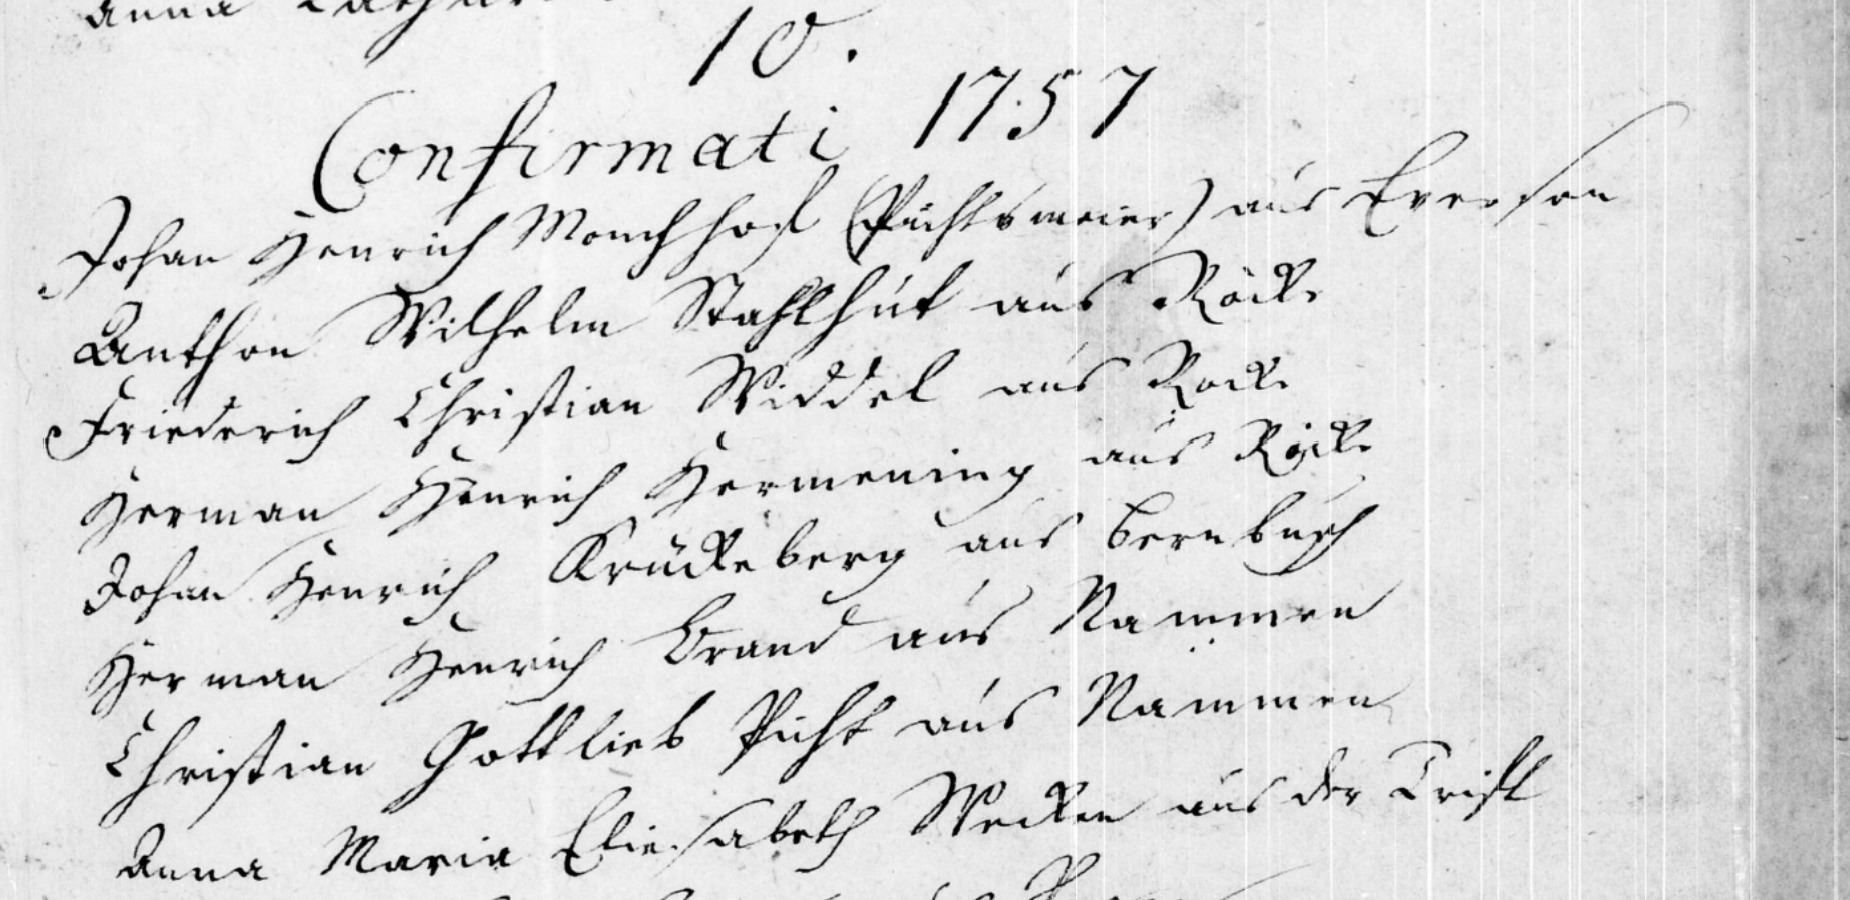 Anna
10.
Confirmati 1757
Johan Henrich Monchhof (Pichtsmeier) aus Eversen
Anthon Wilhelm Stahlhut aus Röcke
Friederich Christian Widdel aus Rocke
Herman Henrich Hermening aus Röcke
Johan Henrich Krückeberg aus Bernbusch
Herman Henrich Brand aus Nammen
Christian Gottlieb Picht aus Nammen
Anna Maria Eliesabeth Wecken aus der Trift